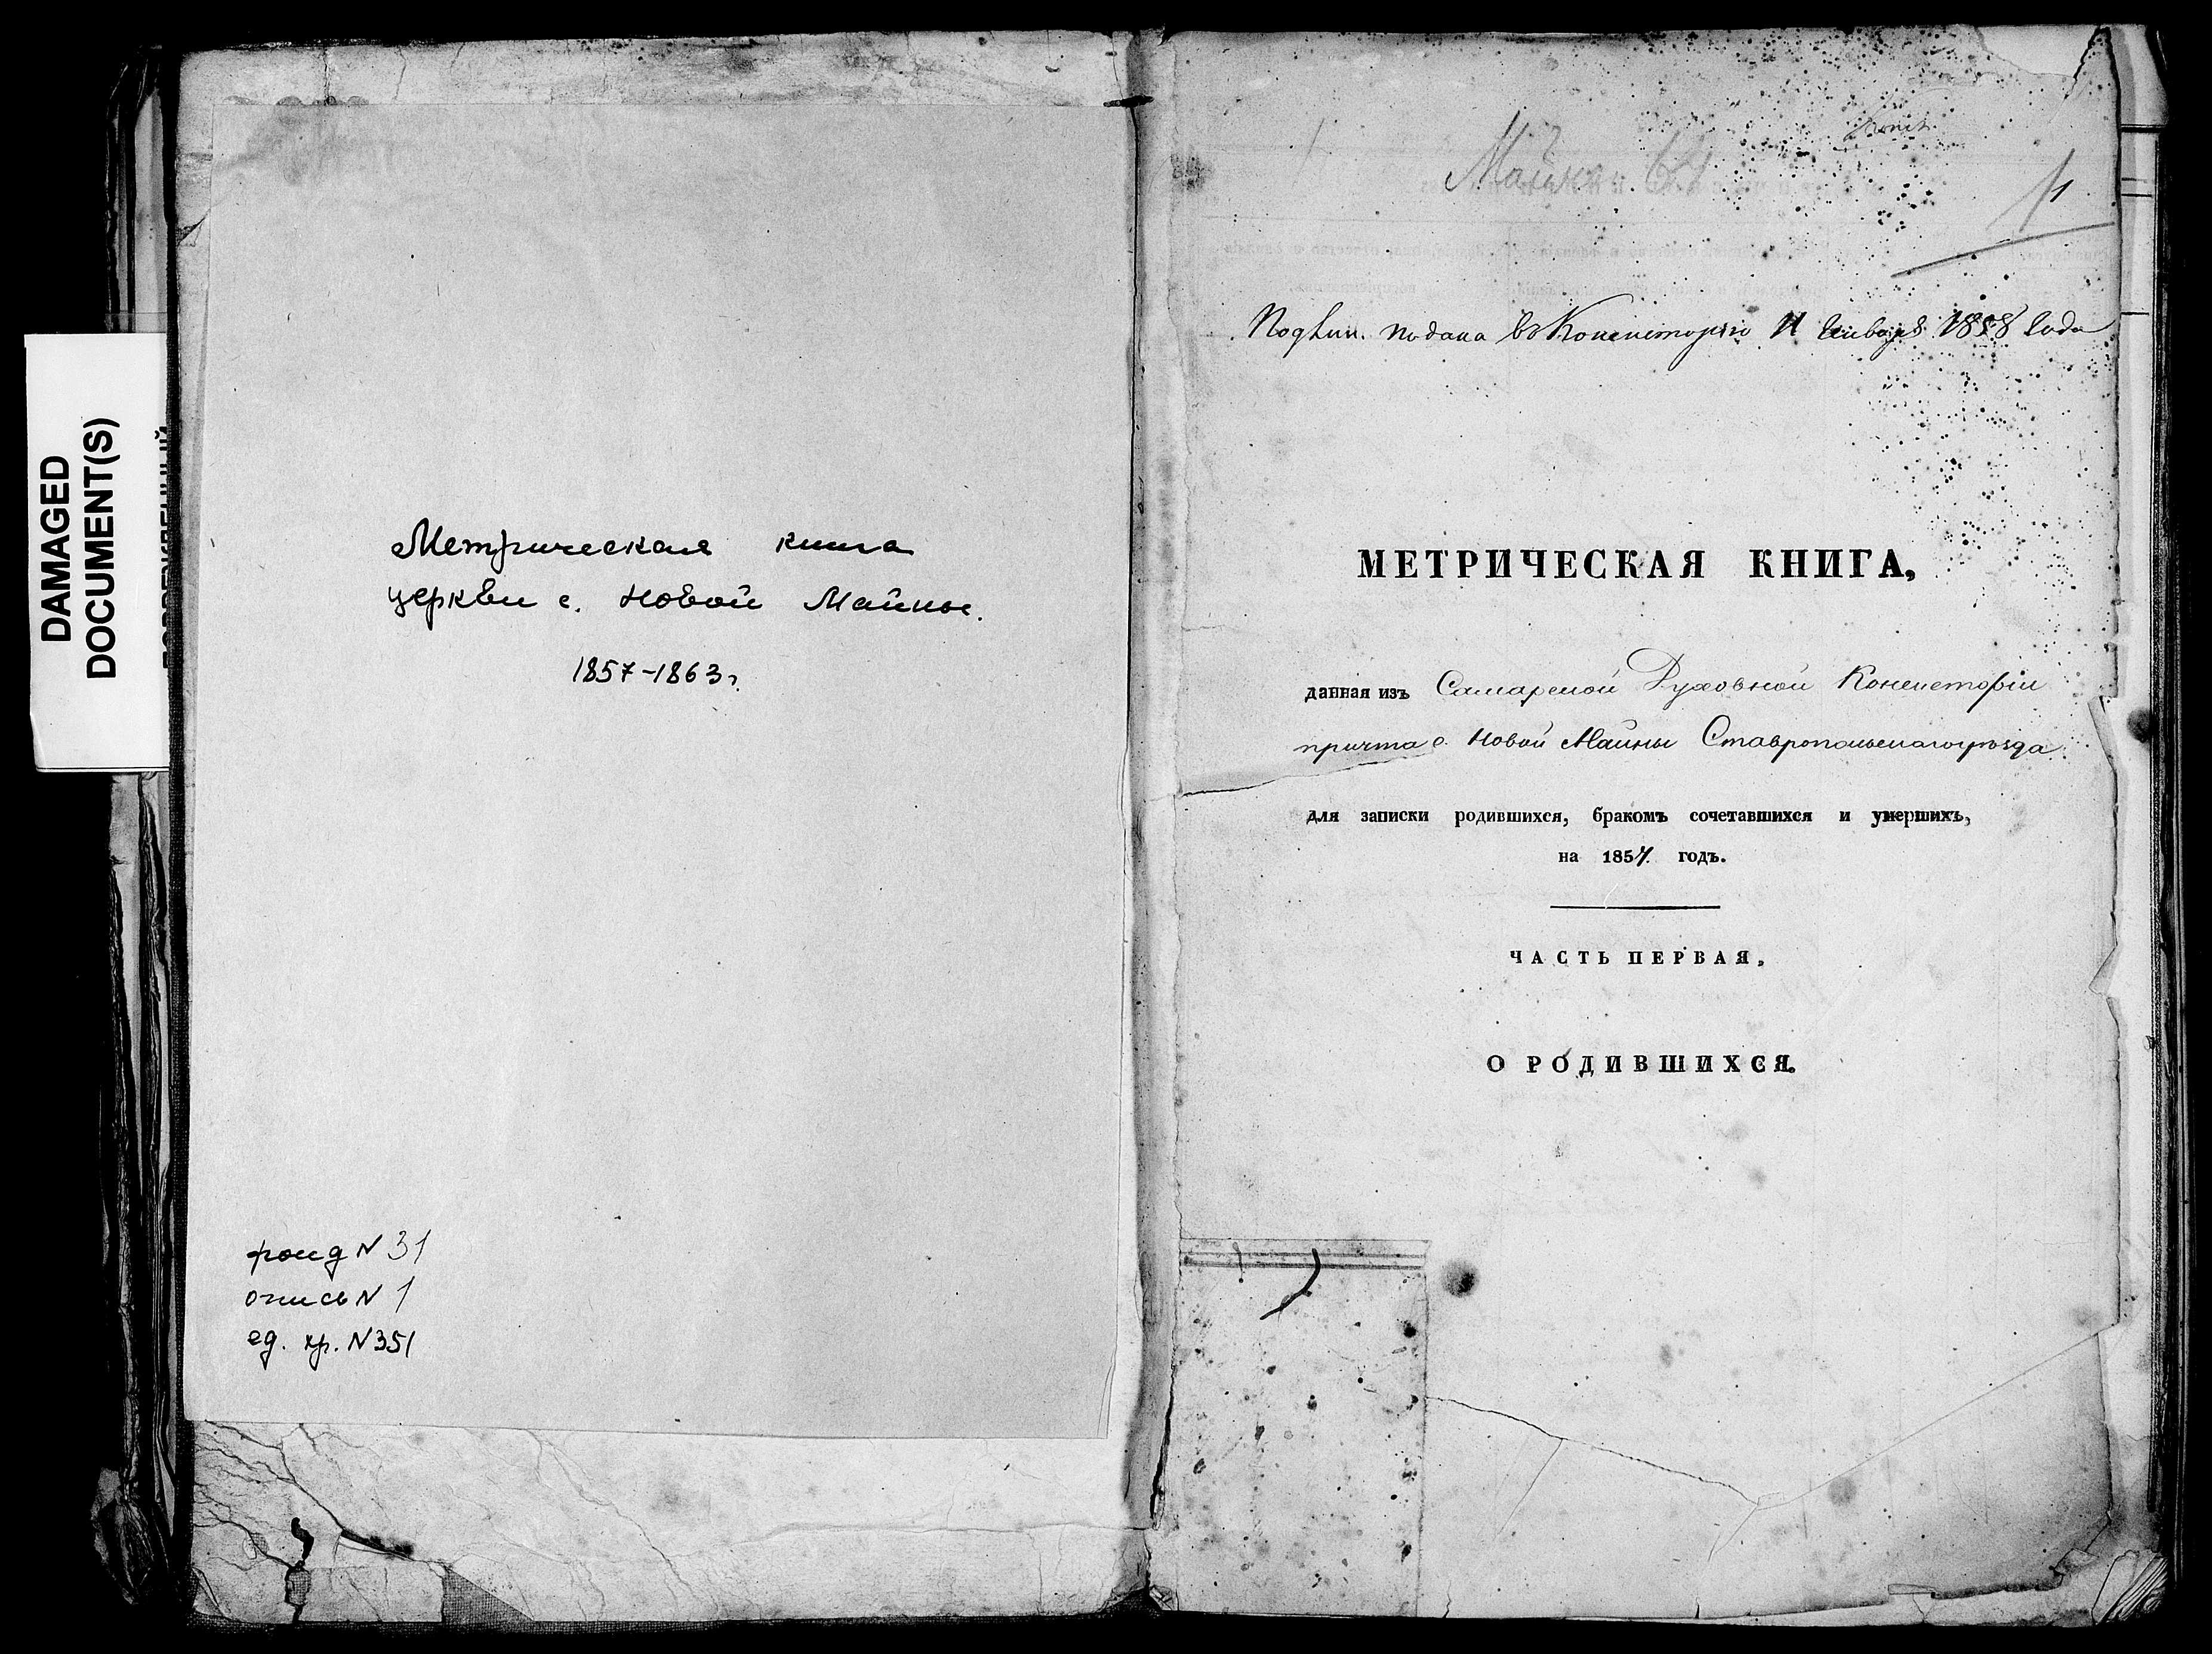 DAMAGED
DOCUMENT(S)
Метрическая книга
церкви с. Новой Майны.
1857-1863 г.
фонд N 31
опись N 1
ед. хр. N 351
Майна
1
подана въ Консисторію 11 Января 1858 года
МЕТРИЧЕСКАЯ КНИГА,
данная изъ Самарской Духовной Консисторіи
причта с. Новой Майны Ставропольскаго уѣзда
для записки родившихся, бракомъ сочетавшихся и умершихъ,
на 1857. годъ.
ЧАСТЬ ПЕРВАЯ.
О РОДИВШИХСЯ.